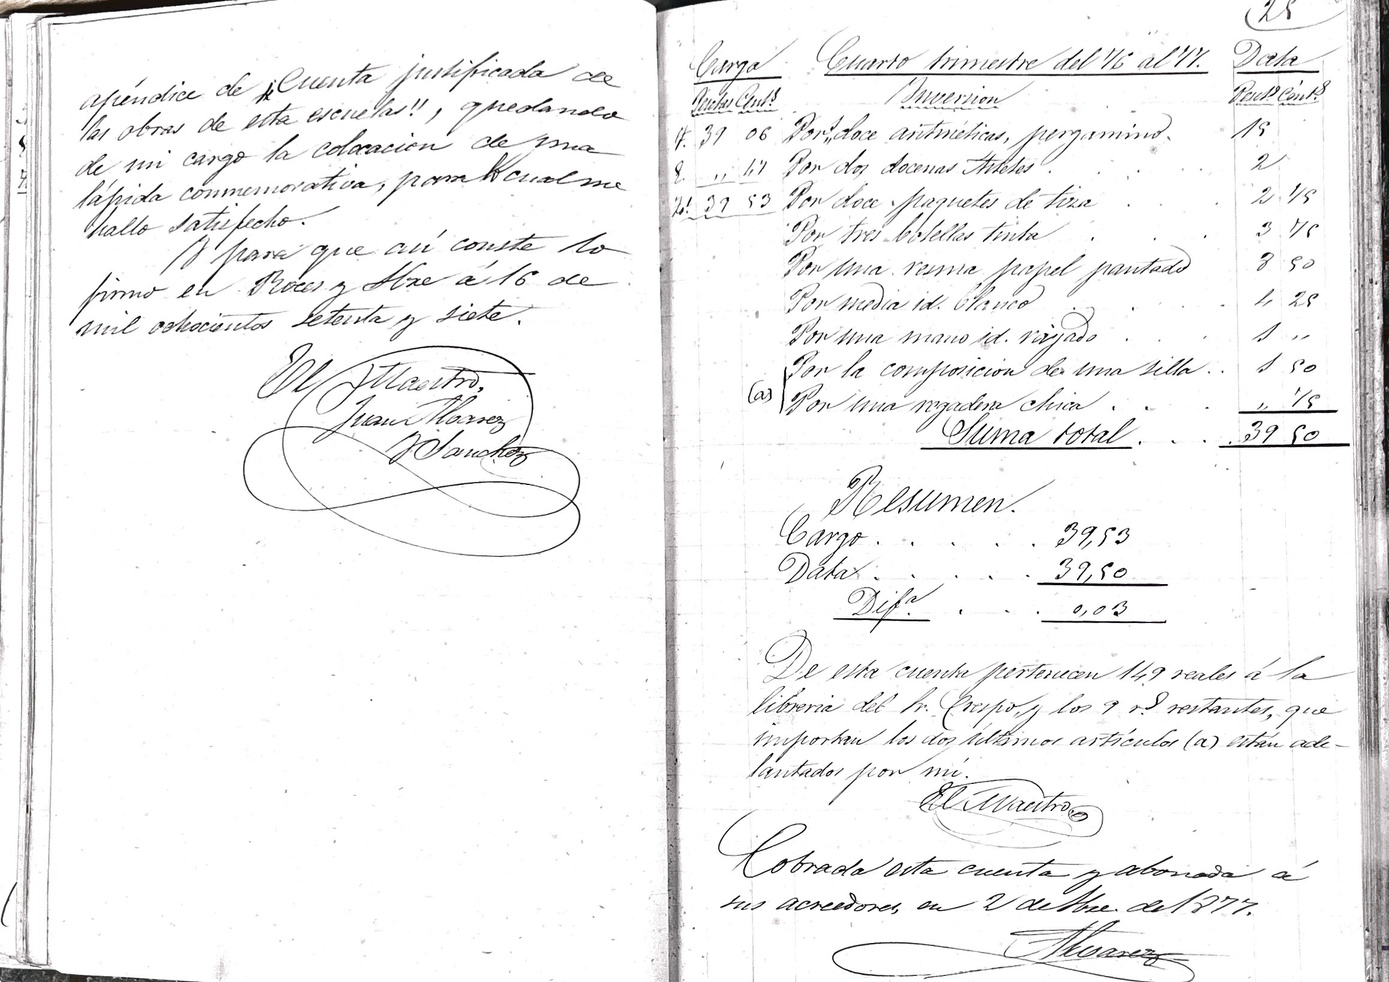 apéndice de "Cuenta justificada de
las obras de esta escuelas!!, quedando
de mi cargo la colocacion de una
lápida conmemorativa, para lo cual me
hallo satisfecho.
Y para que así conste lo
firmo en Roces y Obre á 16 de
mil ochocientos setenta y siete.
El Maestro,
Juan Alvarez
y Sanchez
25
Cargo Cuarto trimestre del 76 al 77. Data
Pesetas Cents Inversion Peset.s Cént.s
4. 39 06 Por doce aritméticas, pergamino. 15
8 " 47 Por dos docenas Carteles . . . . 2
39 53 Por doce paquetes de tiza . . . 2 75
Por tres botellas tinta . . . 3 75
Por una resma papel pautado 8 50
Por media id. blanco . . . 4 25
Por una mano id. rayado . . . 1 "
Por la composicion de una silla . . 1 50
(a) Por una regadera chica . . . " 75
Suma total . . . 39 50
Resumen.
Cargo . . . . . 39,53
Data . . . . . 39,50
Dif.a . . . 0,03
De esta cuenta pertenecen 149 reales á la
libreria del Sr. Crespo, y los 9 r.s restantes, que
importan los dos últimos artículos (a) están ade-
lantados por mí.
El Maestro
Cobrada esta cuenta y abonada á
sus acreedores, en 2 de de 1877.
Alvarez